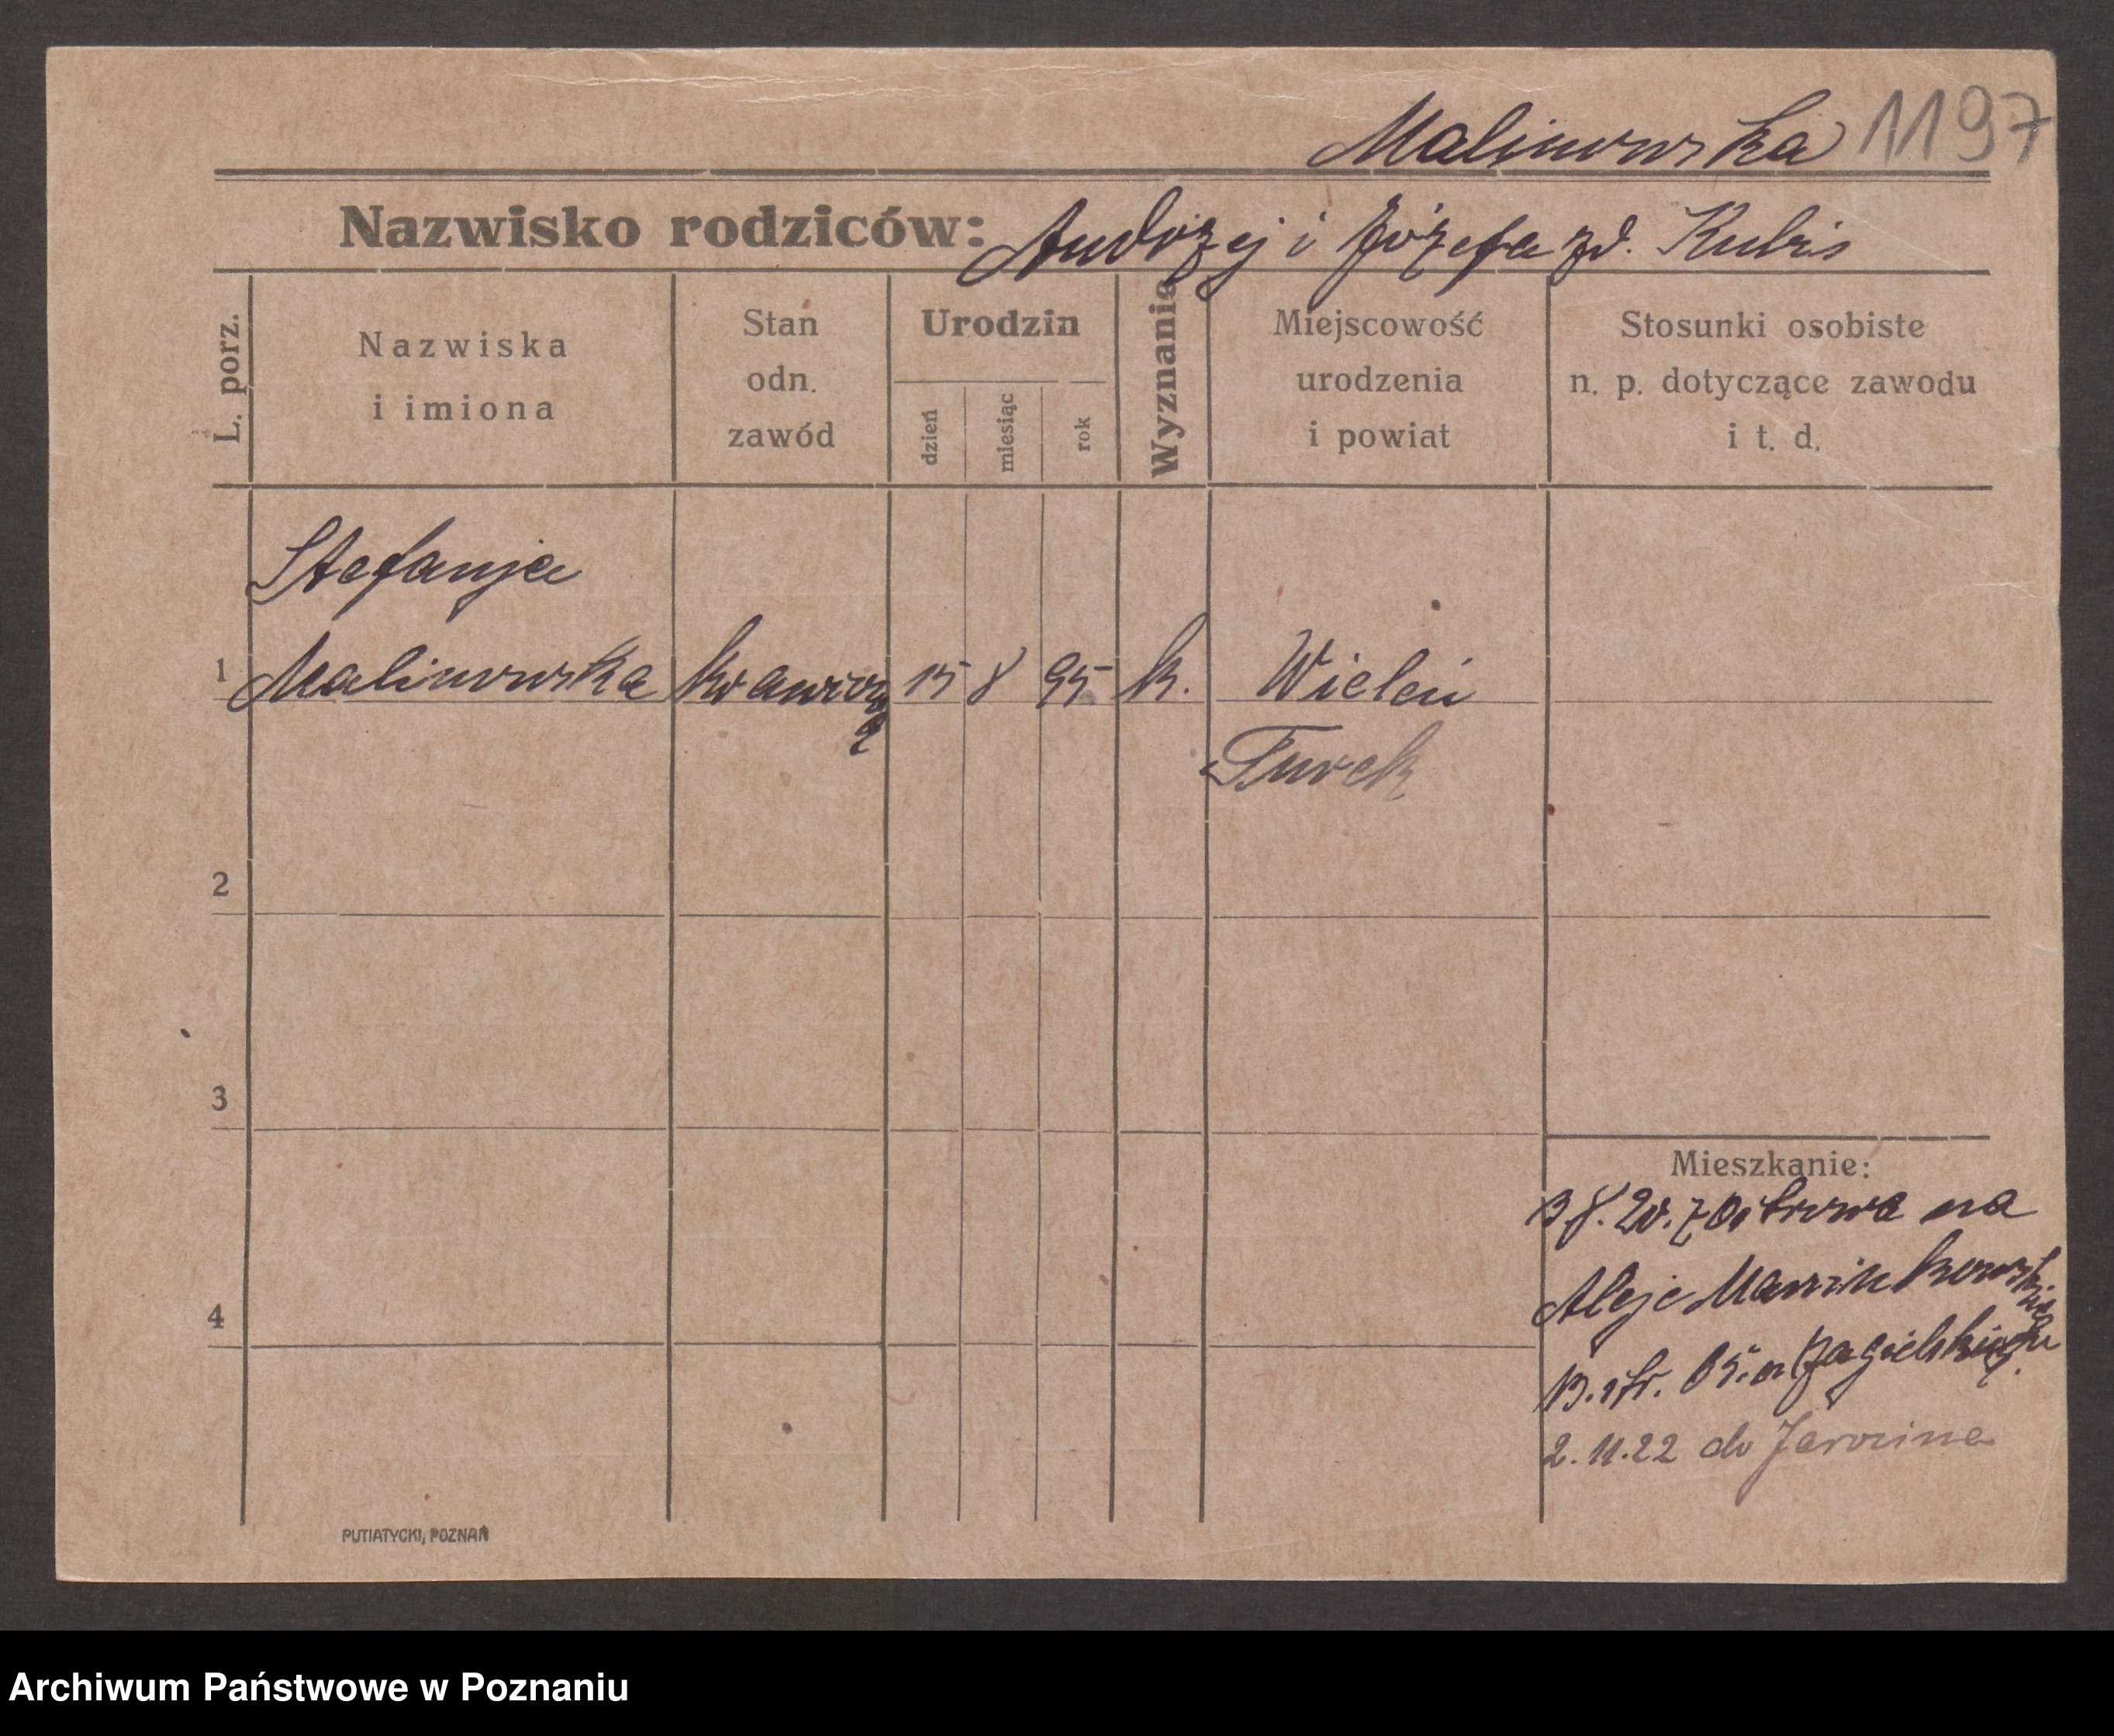 Malinowska 1197
Nazwisko rodziców: Andrzej i Józefa zd. Kubis
L. porz.
Nazwiska
i imiona
Stan
odn.
zawód
Urodzin
dzień
miesiąc
rok
Wyznanie
Miejscowość
urodzenia
i powiat
Stosunki osobiste
n. p. dotyczące zawodu
i t. d.
Stefanja
1 Malinowska krawcowa 15 8 95 k. Wieleń
Turek
2
3
4
Mieszkanie:
8. 20. z Ostrowa na
Aleje Marcinkowskiego
13. u Jagielskiego
2.11.22 do Jarocina
PUTIATYCKI, POZNAŃ
Archiwum Państwowe w Poznaniu